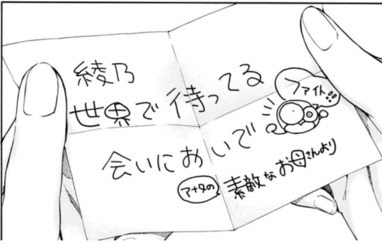 綾乃
世界で待ってる
ファイト!!
会いにおいで
アナタの
素敵なお母さんより